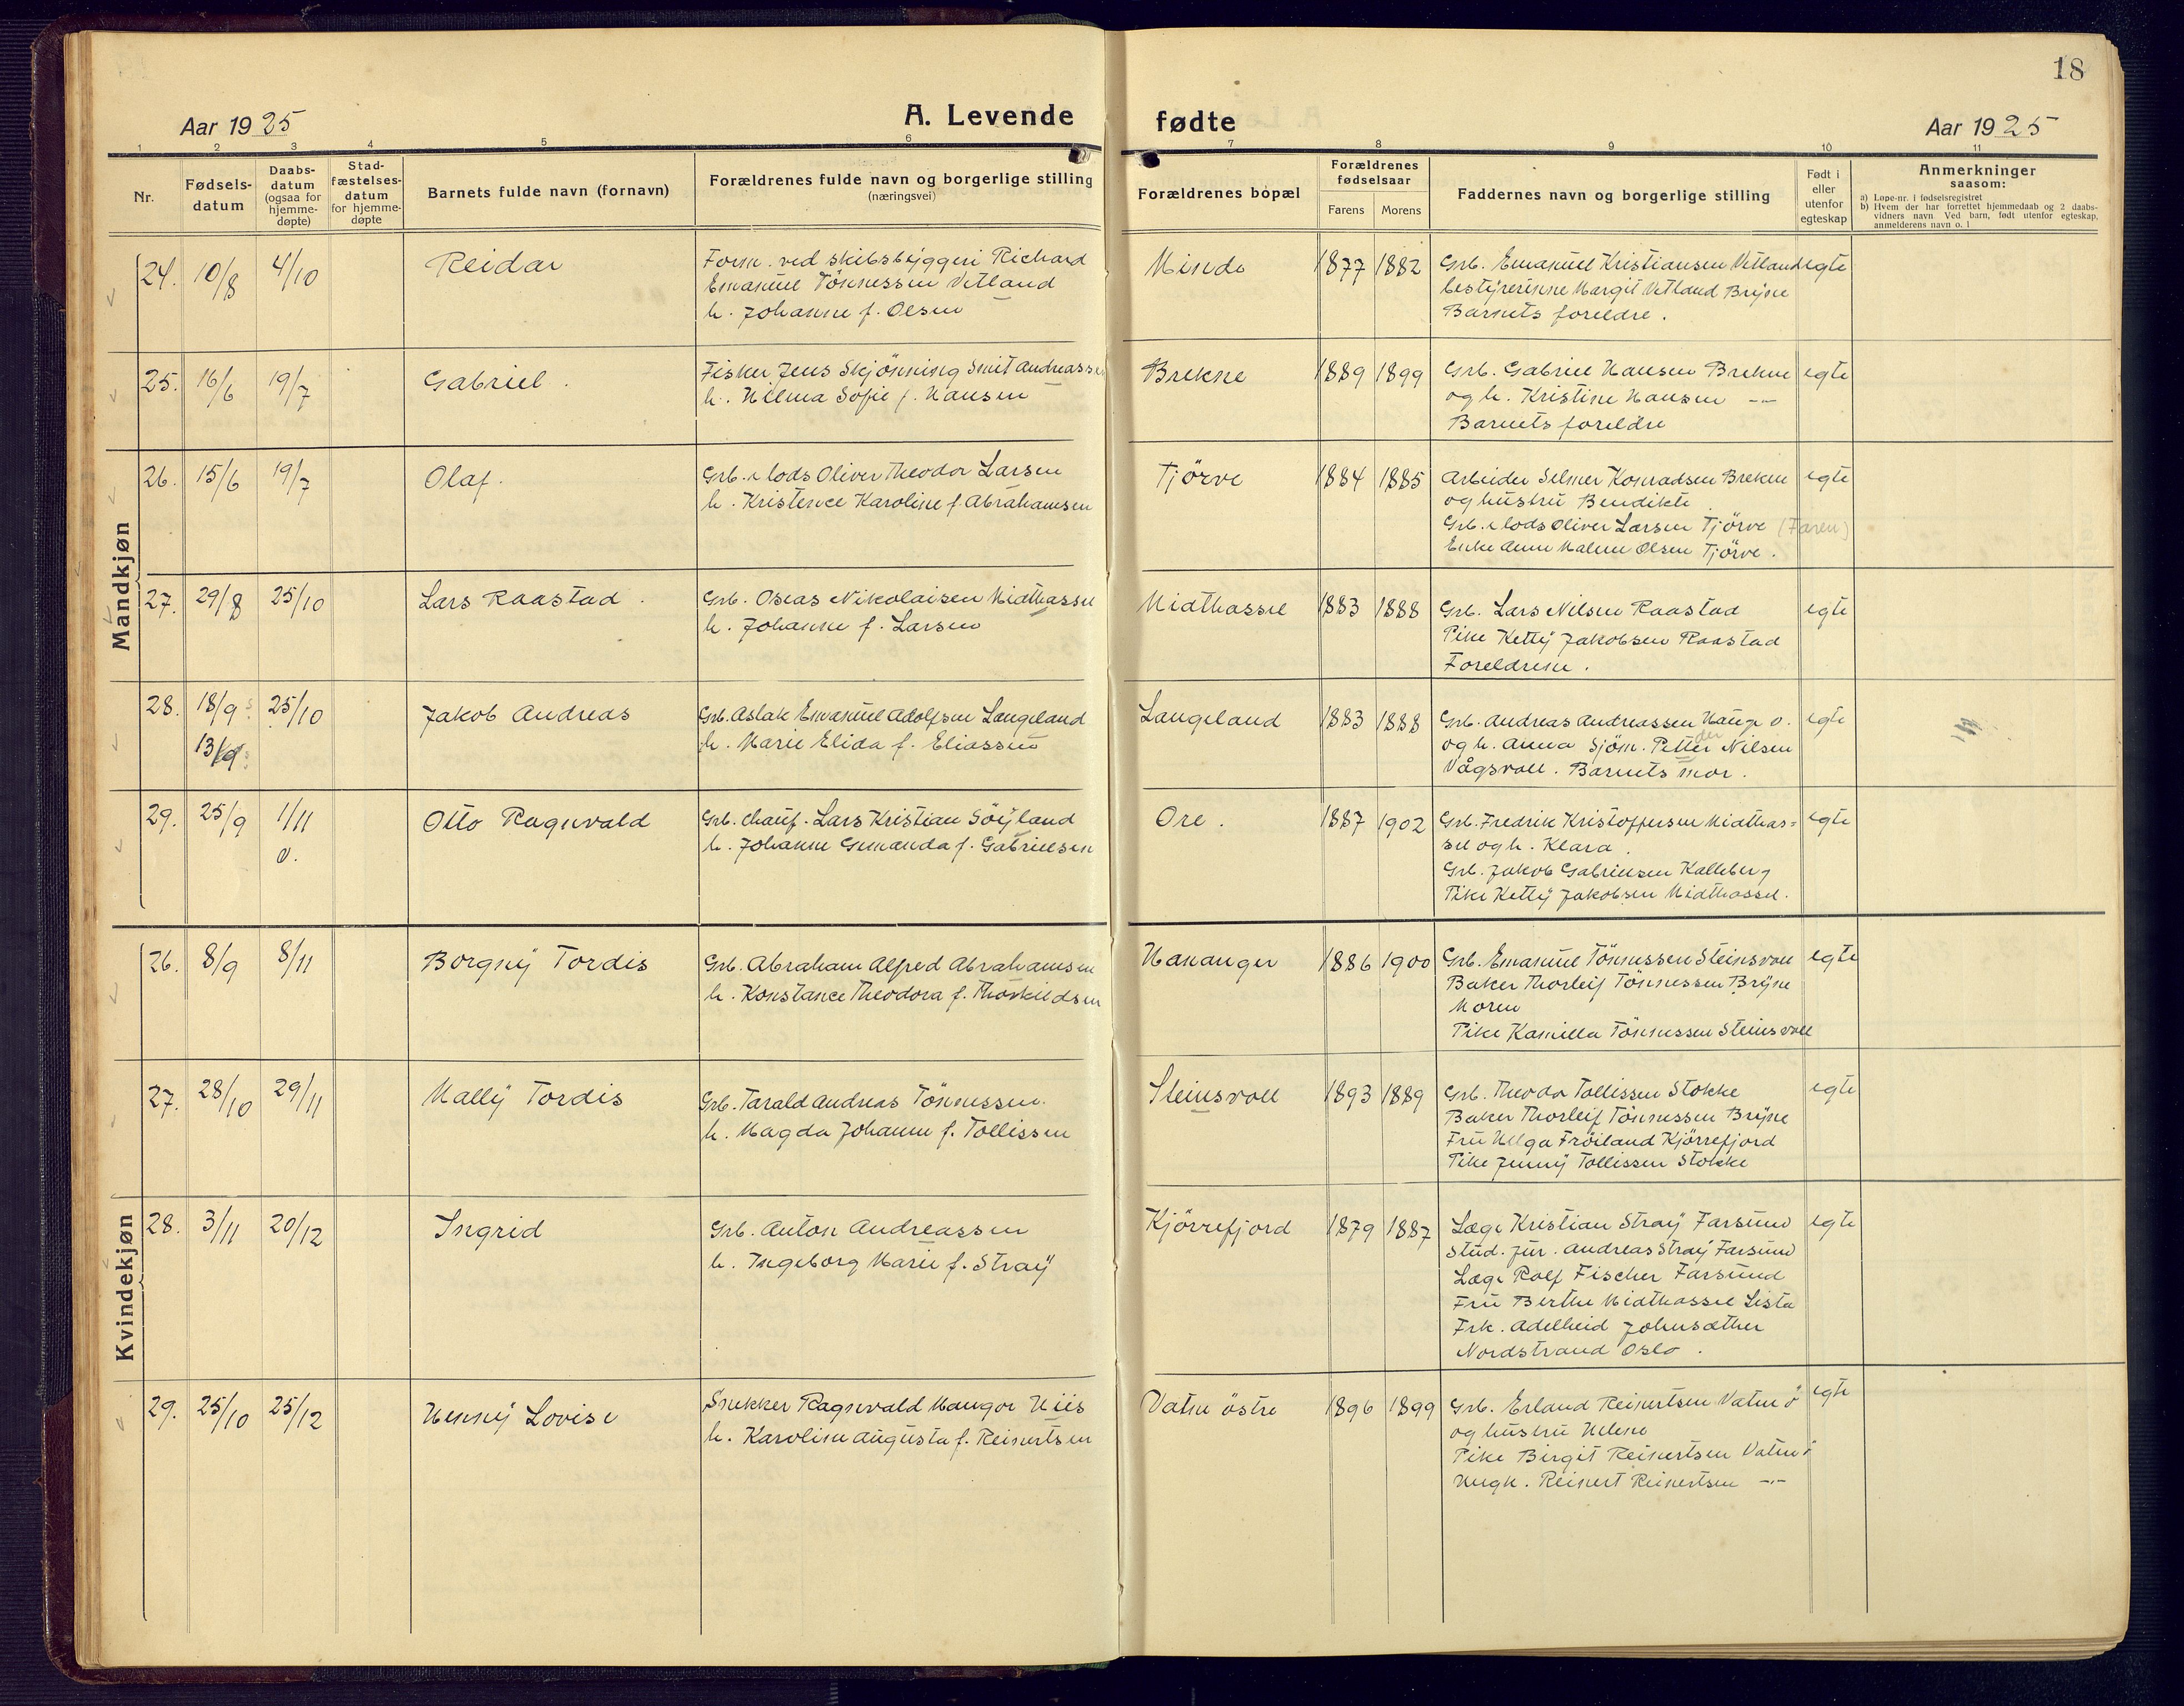 18
Aar 1925
A. Levende
fødte
Aar 1925
1 2 3 4 5 6 7 8 9 10 11
Nr.
Fødsels-
datum
Daabs-
datum
(ogsaa for
hjemme-
døpte)
Stad-
fæstelses-
datum
for hjemme-
døpte
Barnets fulde navn (fornavn)
Forældrenes fulde navn og borgerlige stilling
(næringsvei)
Forældrenes bopæl
Forældrenes
fødselsaar
Farens Morens
Faddernes navn og borgerlige stilling
Født i
eller
utenfor
egteskap
Anmerkninger
saasom:
a) Løpe-nr. i fødselsregistret
b) Hvem der har forrettet hjemmedaab og 2 daabs-
vidners navn. Ved barn, født utenfor egteskap,
anmelderens navn o. l
Mandkjøn
24. 10/8 4/10 Reidar
Form. ved skibsbyggeri Richard
Emanuel Tönnessen Vetland
h. Johanne f. Olsen
Minde 1877 1882
Grb. Emanuel Kristiansen Vetland egte
bestyrerinne Margit Vetland Bryne
Barnets foreldre.
25. 16/6 19/7 Gabriel.
Fisker Jens Skjönning Smit Andreassen
h. Hilma Sofie f. Hansen
Brekne 1889 1899
Grb. Gabriel Hansen Brekne egte
og h. Kristine Hansen -"-
Barnets foreldre
26. 15/6 19/7 Olaf.
Grb. & lods Oliver Theodor Larsen
h. Kristence Karoline f. Abrahamsen
Tjörve 1884 1885
Arbeider Selmer Konradsen Brekne egte
og hustru Bendikte
Grb. & lods Oliver Larsen Tjörve (Faren)
Enke Anne Malene Olsen Tjörve.
27. 29/8 25/10 Lars Raastad.
Grb. Oseas Nikolaisen Midthassel
h. Johanne f. Larsen
Midthassel 1883 1888
Grb. Lars Nilsen Raastad egte
Pike Ketty Jakobsen Raastad
Foreldrene.
28. 18/9 25/10 Jakob Andreas
13/9
Grb. Aslak Emanuel Adolfsen Langeland
h. Marie Elida f. Eliassen
Langeland 1883 1888
Grb. Andreas Andreassen Hauge v. egte
og h. Anna Sjöm. Petter Nilsen
Vågsvoll. Barnets mor.
29. 25/9 1/11 Otto Ragnvald
v.
Grb. chauf. Lars Kristian Söyland
h. Johanne Gemanda f. Gabrielsen
Ore. 1887 1902
Grb. Fredrik Kristoffersen Midthas= egte
sel og h. Klara.
Grb. Jakob Gabrielsen Kalleberg
Pike Ketty Jakobsen Midthassel.
Kvindekjøn
26. 8/9 8/11 Borgny Tordis
Grb. Abraham Alfred Abrahamsen
h. Konstance Theodora f. Thorkildsen
Hananger 1886 1900
Grb. Emanuel Tönnessen Steinsvoll egte
Baker Thorleif Tönnessen Bryne
Moren
Pike Kamilla Tönnessen Steinsvoll
27. 28/10 29/11 Mally Tordis
Grb. Tarald Andreas Tönnessen.
h. Magda Johanne f. Tollissen
Steinsvoll 1893 1889
Grb. Theodor Tollissen Stokke egte
Baker Thorleif Tönnessen Bryne
Fru Helga Fröiland Kjörrefjord
Pike Jenny Tollissen Stokke
28. 3/11 20/12 Ingrid
Grb. Anton Andreassen
h. Ingeborg Marie f. Stray
Kjörrefjord 1879 1887
Læge Kristian Stray Farsund egte
stud. jur. Andreas Stray Farsund
Læge Rolf Fischer Farsund
Fru Berthe Midthassel Lista
Frk. Adelheid Johnsæther
Nordstrand Oslo.
29. 25/10 25/12 Henny Lovise
Snekker Ragnvald Mangor Hiis
h. Karoline Augusta f. Reinertsen
Vatne östre 1896 1899
Grb. Erland Reinertsen Vatne ö egte
og hustru Helene
Pike Birgit Reinertsen Vatne ö
Ungk. Reinert Reinertsen -"-